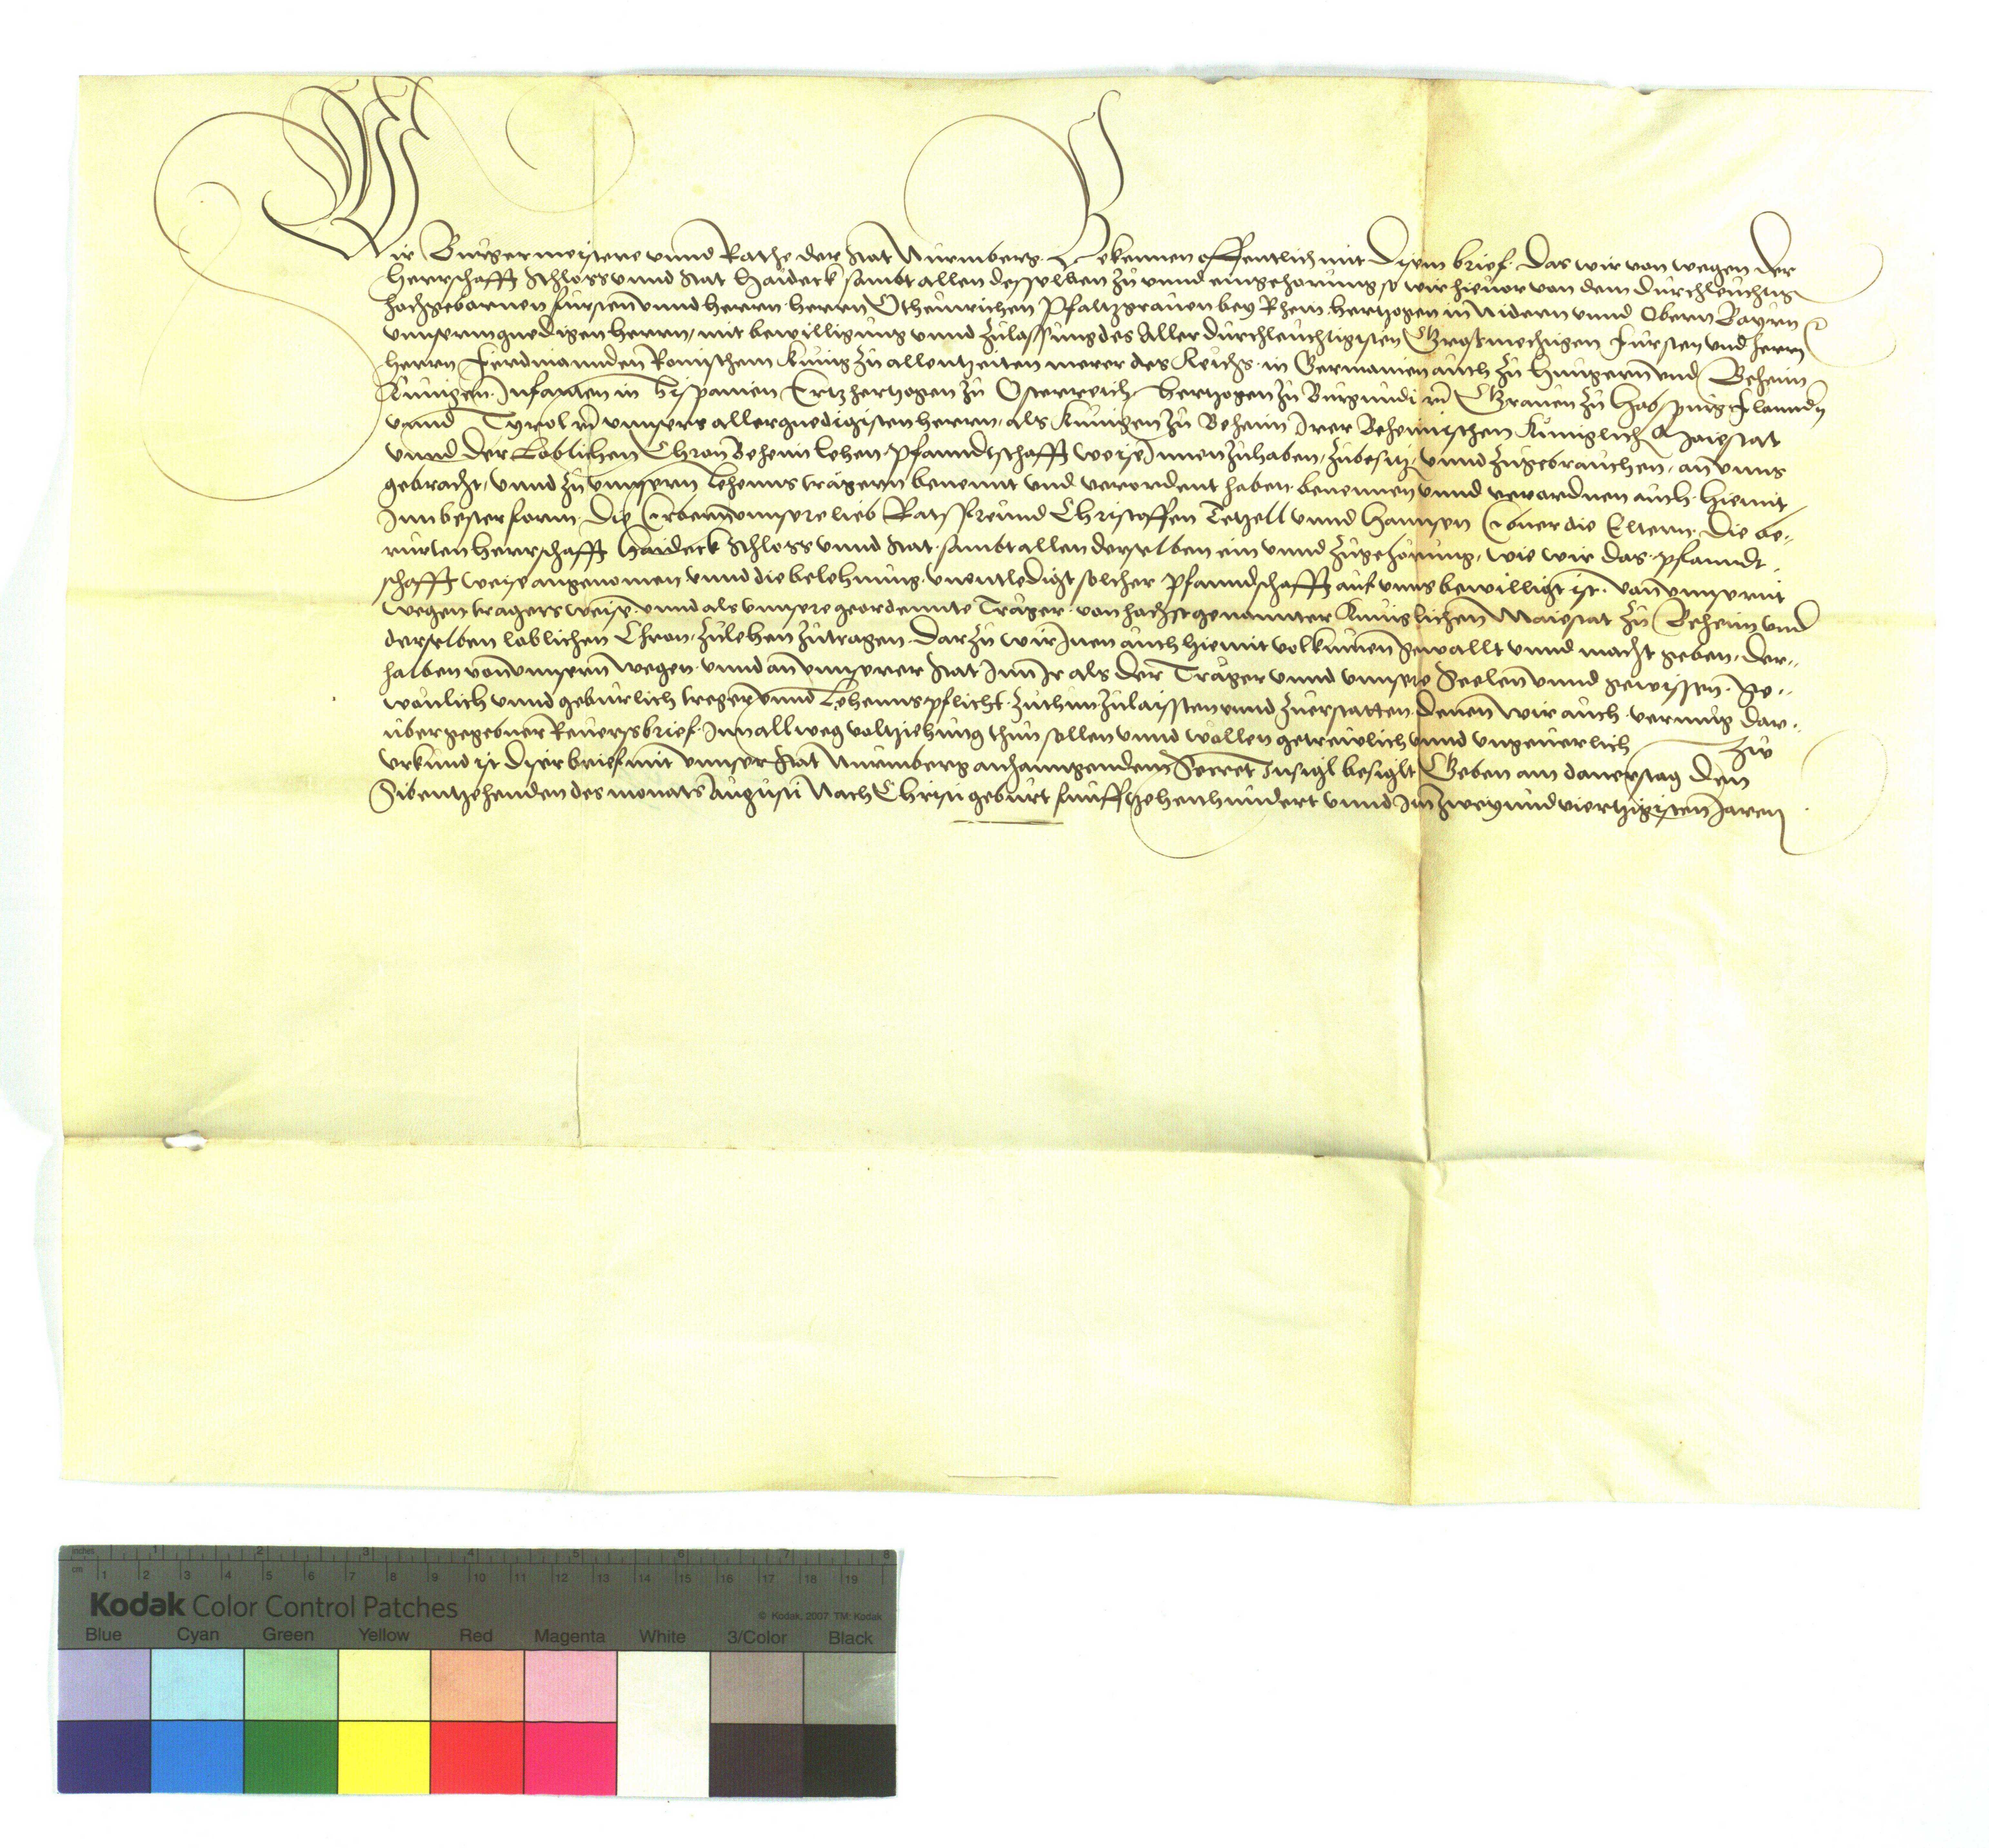 Wir Burgermeistere vnnd Rathe der Stat Nurmberg. Bekennen offentlich mit Disem brief. Das wir von wegen der
herrschafft Schloss vnnd Stat Haideck sambt allen desselben zu vnnd eingehorung so wir hieuor von dem durchleuchtig
hochgebornen fursten vnnd herrn herrn Othainrichen Pfaltzgrauen bey Rhein. hertzogen in Nidern vnnd Obern Bayrn
vnnserm gnedigen herrn, mit bewilligung vnnd zulassung des Aller durchleuchtigisten Grosmechtigen fursten vnd herrn
herrn Ferdinannden Romischem kunig zu allentzeiten merer des Reichs. in Germanien auch zu Hungern vnd Beheim
Kunigen. Infanten in Hispanien Ertzhertzogen zu Osterreich hertzogen zu Burgundi Grauen zu Habspurg Flanndn
vnnd Tyrol vnnsers allergnedigisten herrn, als kunigen zu Beheim Irer Behemischen Kuniglich Maiestat
vnnd der Loblichen Chron Beheim lehen pfanndtschafft weise Innen zuhaben, zubesitz vnnd zugebrauchen, an vnns
gebracht, vnnd zu vnnsern Lehenns tragern benennt vnd verordent haben. benennen vnnd verordnen auch hiemit
Inn bester form. Die Erbern vnnsere lieb Ratsfreund Christoffen Tetzell vnnd Hannsen Ebner die Eltern. Die be-
rurten herrschafft Haideck Schloss vnnd Stat. sambt allen derselben ein vnnd zugehorung, wie wir das. pfanndt
schafft weise angenomen vnnd die belehnung. vnentledigt solcher pfanndschafft auf vnns bewilligt ist. von vnnsernt
wegen tragers weise. vnnd als vnnsere geordennte Trager. von hochstgenannter Kuniglichen Maiestat zu Beheim vnd
derselben loblichen Chron, zulehen zutragen. Darzu wir Inen auch hiemit volkumen gewallt vnnd macht geben, der-
halben von vnnsern wegen. vnnd an vnnserer Stat Inn Ir als der Trager vnnd vnnsere Seelen vnnd gewissen. ge-
wonlich vnnd geburlich treger vnnd Lehennspflicht. zuthun zulaissten vnnd zuerstatten. denen wir auch. vermug dar
vbergegebner Reuersbrief. Inn allweg voltziehung thun sollen vnnd wollen getreulich vnnd vngeuerlich Zu
vrkund ist diser brief mit vnnser Stat Nurmberg anhanngendem Secret Insigl besiglt Geben am donerstag den
Sibentzehenden des monats Augusti Nach Christi geburt funffzehenhundert vnnd Im zweyundviertzigisten Jaren
Kodak Color Control Patches
© Kodak, 2007 TM: Kodak
Blue Cyan Green Yellow Red Magenta White 3/Color Black
inches 1 2 3 4 5 6 7 8
cm 1 2 3 4 5 6 7 8 9 10 11 12 13 14 15 16 17 18 19